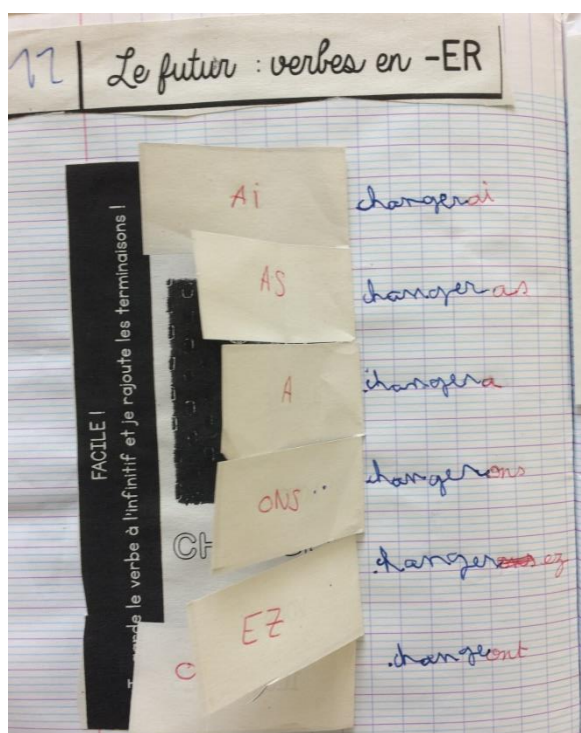 11 Le futur : verbes en -ER
FACILE !
garde le verbe à l'infinitif et je rajoute les terminaisons !
Ai changerai
AS changeras
A changera
ONS changerons
CH
changer ez
EZ
C changeont